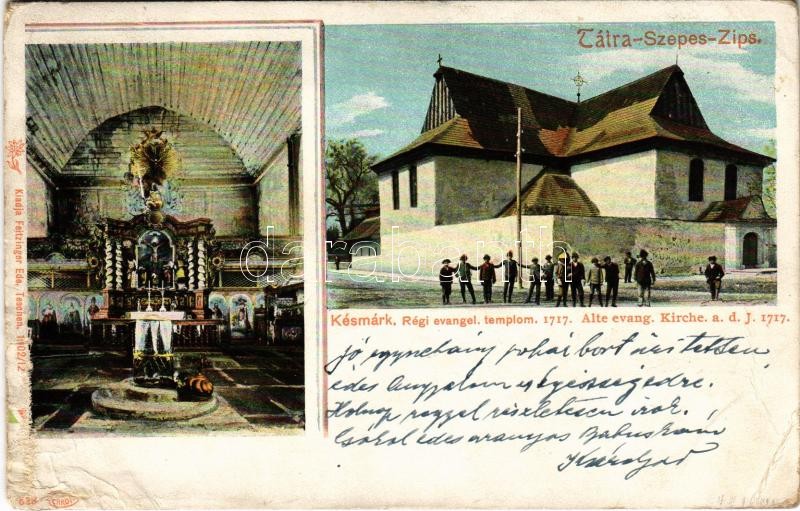 Tátra-Szepes-Zips.
Késmárk. Régi evangel. templom. 1717. Alte evang. Kirche. a. d. J. 1717.
jó egynehány pohár bort ürítettem
édes Angyalom egészségedre.
Holnap reggel részletesen írok.
Csókol édes aranyos Babuskám
Károlyod
Kiadja Feitzinger Ede, Teschen. 1902/12
638
darabanth